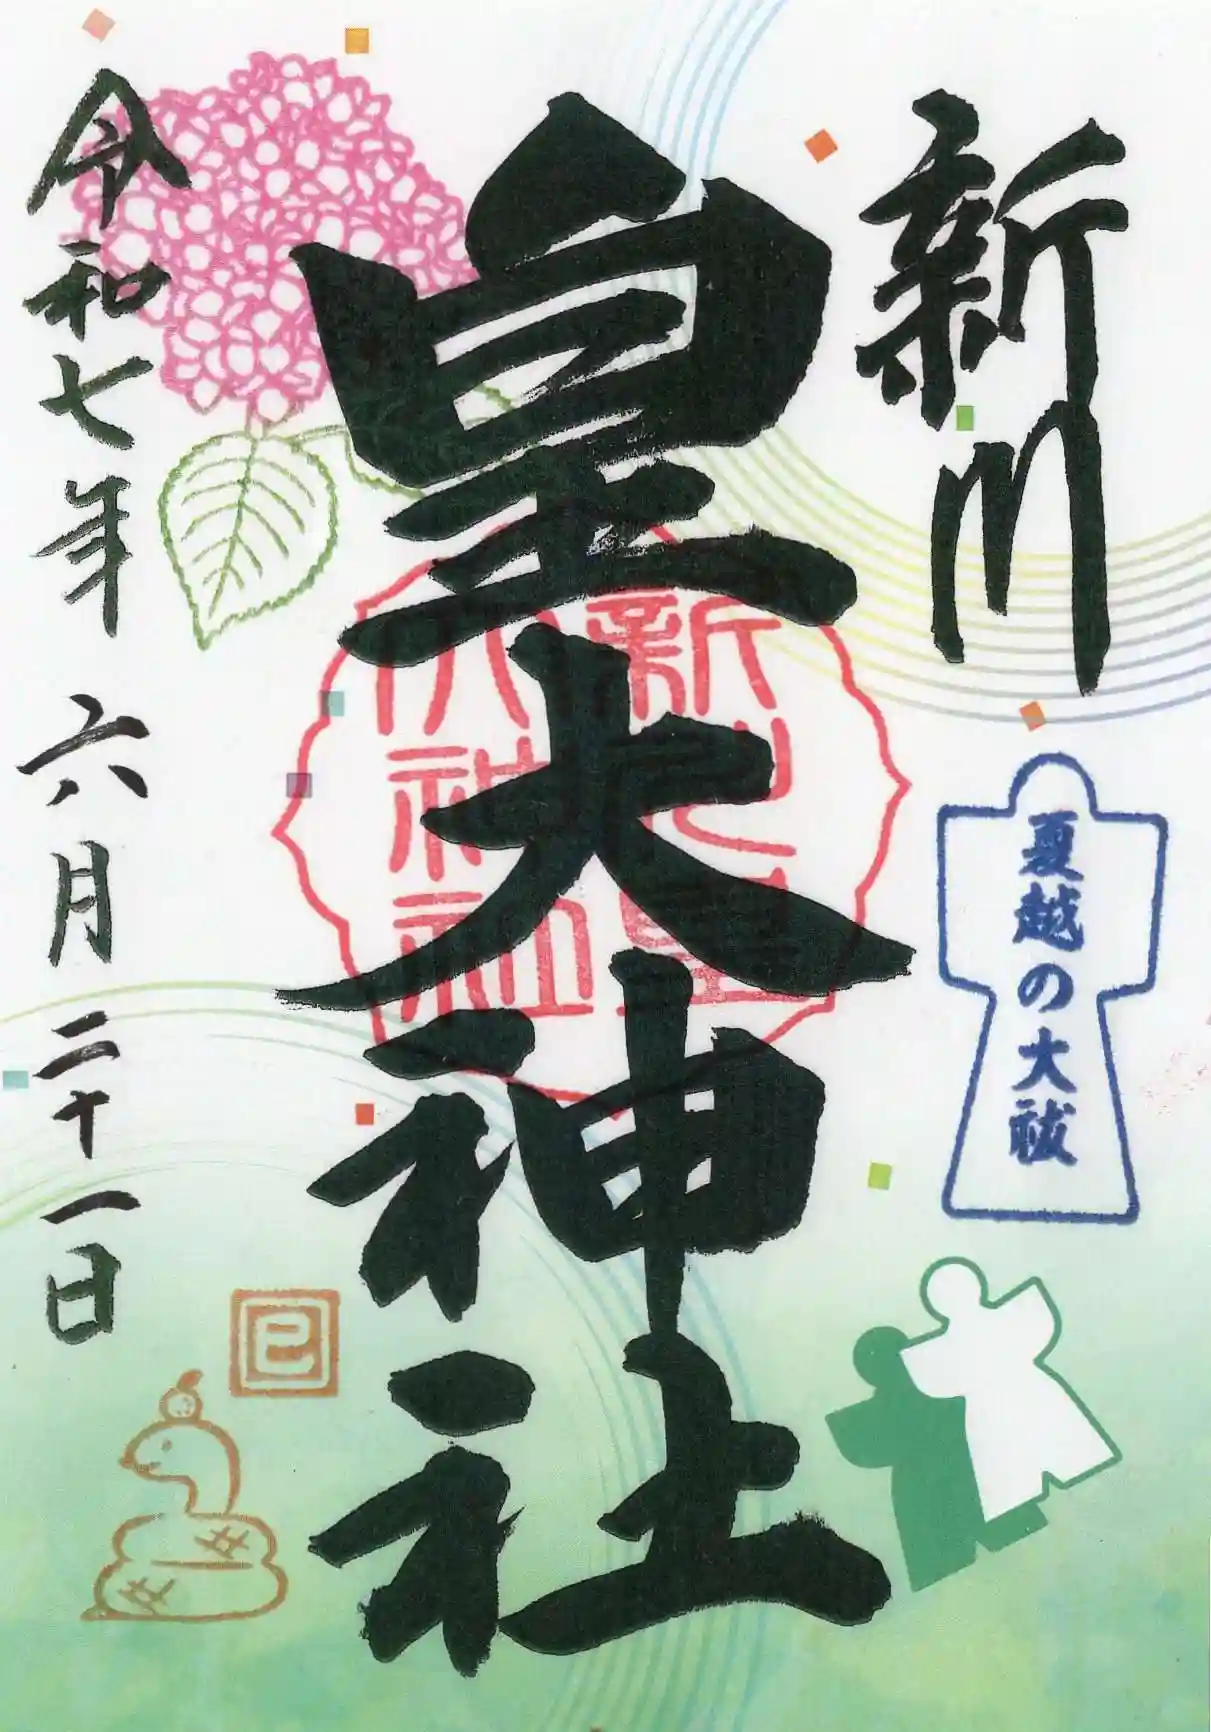 新川
夏越の大祓
皇大神社
新川皇
大神社
令和七年 六月二十一日
巳